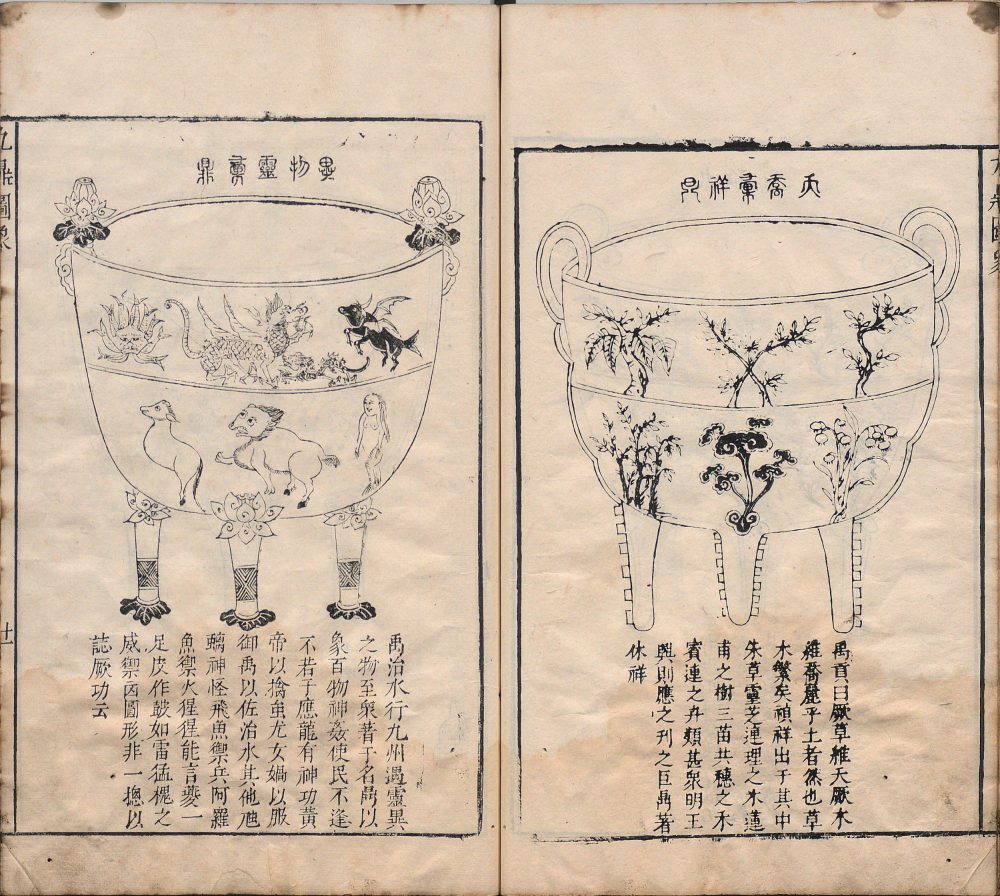 夭喬彙祥鼎
禹貢曰厥草維夭厥木
維喬麗乎土者然也草
木繁矣禎祥出于其中
朱草靈芝連理之木蓮
甫之樹三苗共穗之禾
賓連之卉類甚衆明王
興則應之刊之巨鼎著
休祥
異物靈彙鼎
禹治水行九州遇靈異
之物至衆著于名鼎以
象百物神姦使民不逢
不若于應龍有神功黃
帝以擒蚩尤女媧以服
御禹以佐治水其他虺
蝄神怪飛魚禦兵阿羅
魚禦火猩猩能言夔一
足皮作鼓如雷猛槐之
威禦凶圖形非一摠以
誌厥功云
九鼎圖象